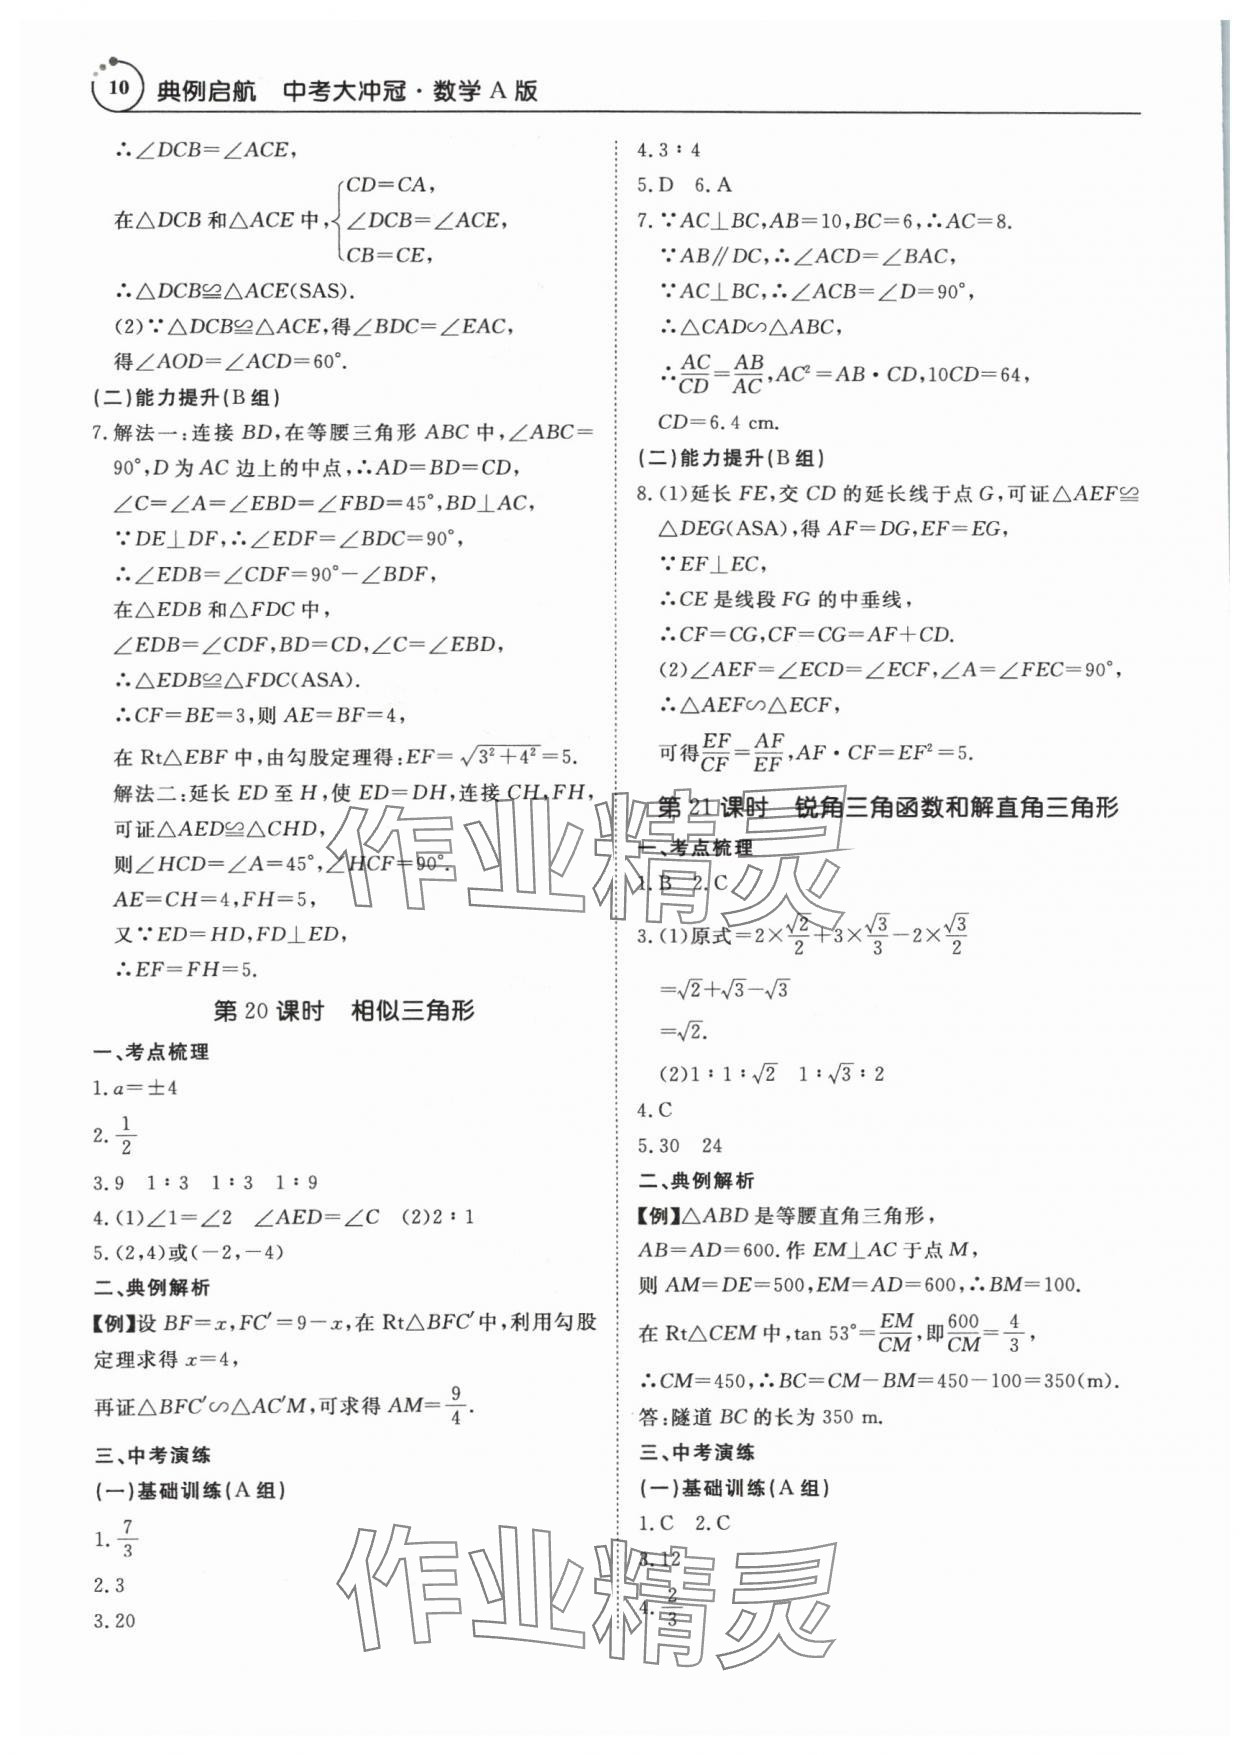 10 典例启航 中考大冲冠·数学 A 版
∴∠DCB=∠ACE,
在△DCB 和△ACE 中,{CD=CA,
∠DCB=∠ACE,
CB=CE,
∴△DCB≌△ACE(SAS).
(2)∵△DCB≌△ACE,得∠BDC=∠EAC,
得∠AOD=∠ACD=60°.
(二)能力提升(B 组)
7.解法一:连接 BD,在等腰三角形 ABC 中,∠ABC=
90°,D 为 AC 边上的中点,∴AD=BD=CD,
∠C=∠A=∠EBD=∠FBD=45°,BD⊥AC,
∵DE⊥DF,∴∠EDF=∠BDC=90°,
∴∠EDB=∠CDF=90°-∠BDF,
在△EDB 和△FDC 中,
∠EDB=∠CDF,BD=CD,∠C=∠EBD,
∴△EDB≌△FDC(ASA).
∴CF=BE=3,则 AE=BF=4,
在 Rt△EBF 中,由勾股定理得:EF=√(3²+4²)=5.
解法二:延长 ED 至 H,使 ED=DH,连接 CH,FH,
可证△AED≌△CHD,
则∠HCD=∠A=45°,∠HCF=90°.
AE=CH=4,FH=5,
又∵ED=HD,FD⊥ED,
∴EF=FH=5.
第 20 课时 相似三角形
一、考点梳理
1.a=±4
2.1/2
3.9 1∶3 1∶3 1∶9
4.(1)∠1=∠2 ∠AED=∠C (2)2∶1
5.(2,4)或(-2,-4)
二、典例解析
【例】设 BF=x,FC′=9-x,在 Rt△BFC′中,利用勾股
定理求得 x=4,
再证△BFC′∽△AC′M,可求得 AM=9/4.
三、中考演练
(一)基础训练(A 组)
1.7/3
2.3
3.20
4.3∶4
5.D 6.A
7.∵AC⊥BC,AB=10,BC=6,∴AC=8.
∵AB∥DC,∴∠ACD=∠BAC,
∵AC⊥BC,∴∠ACB=∠D=90°,
∴△CAD∽△ABC,
∴AC/CD=AB/AC,AC²=AB·CD,10CD=64,
CD=6.4 cm.
(二)能力提升(B 组)
8.(1)延长 FE,交 CD 的延长线于点 G,可证△AEF≌
△DEG(ASA),得 AF=DG,EF=EG,
∵EF⊥EC,
∴CE 是线段 FG 的中垂线,
∴CF=CG,CF=CG=AF+CD.
(2)∠AEF=∠ECD=∠ECF,∠A=∠FEC=90°,
∴△AEF∽△ECF,
可得EF/CF=AF/EF,AF·CF=EF²=5.
第 21 课时 锐角三角函数和解直角三角形
一、考点梳理
1.B 2.C
3.(1)原式=2×√2/2+3×√3/3-2×√3/2
=√2+√3-√3
=√2.
(2)1∶1∶√2 1∶√3∶2
4.C
5.30 24
二、典例解析
【例】△ABD 是等腰直角三角形,
AB=AD=600.作 EM⊥AC 于点 M,
则 AM=DE=500,EM=AD=600,∴BM=100.
在 Rt△CEM 中,tan 53°=EM/CM,即600/CM=4/3,
∴CM=450,∴BC=CM-BM=450-100=350(m).
答:隧道 BC 的长为 350 m.
三、中考演练
(一)基础训练(A 组)
1.C 2.C
3.12
4.2/3
作业精灵
作业精灵